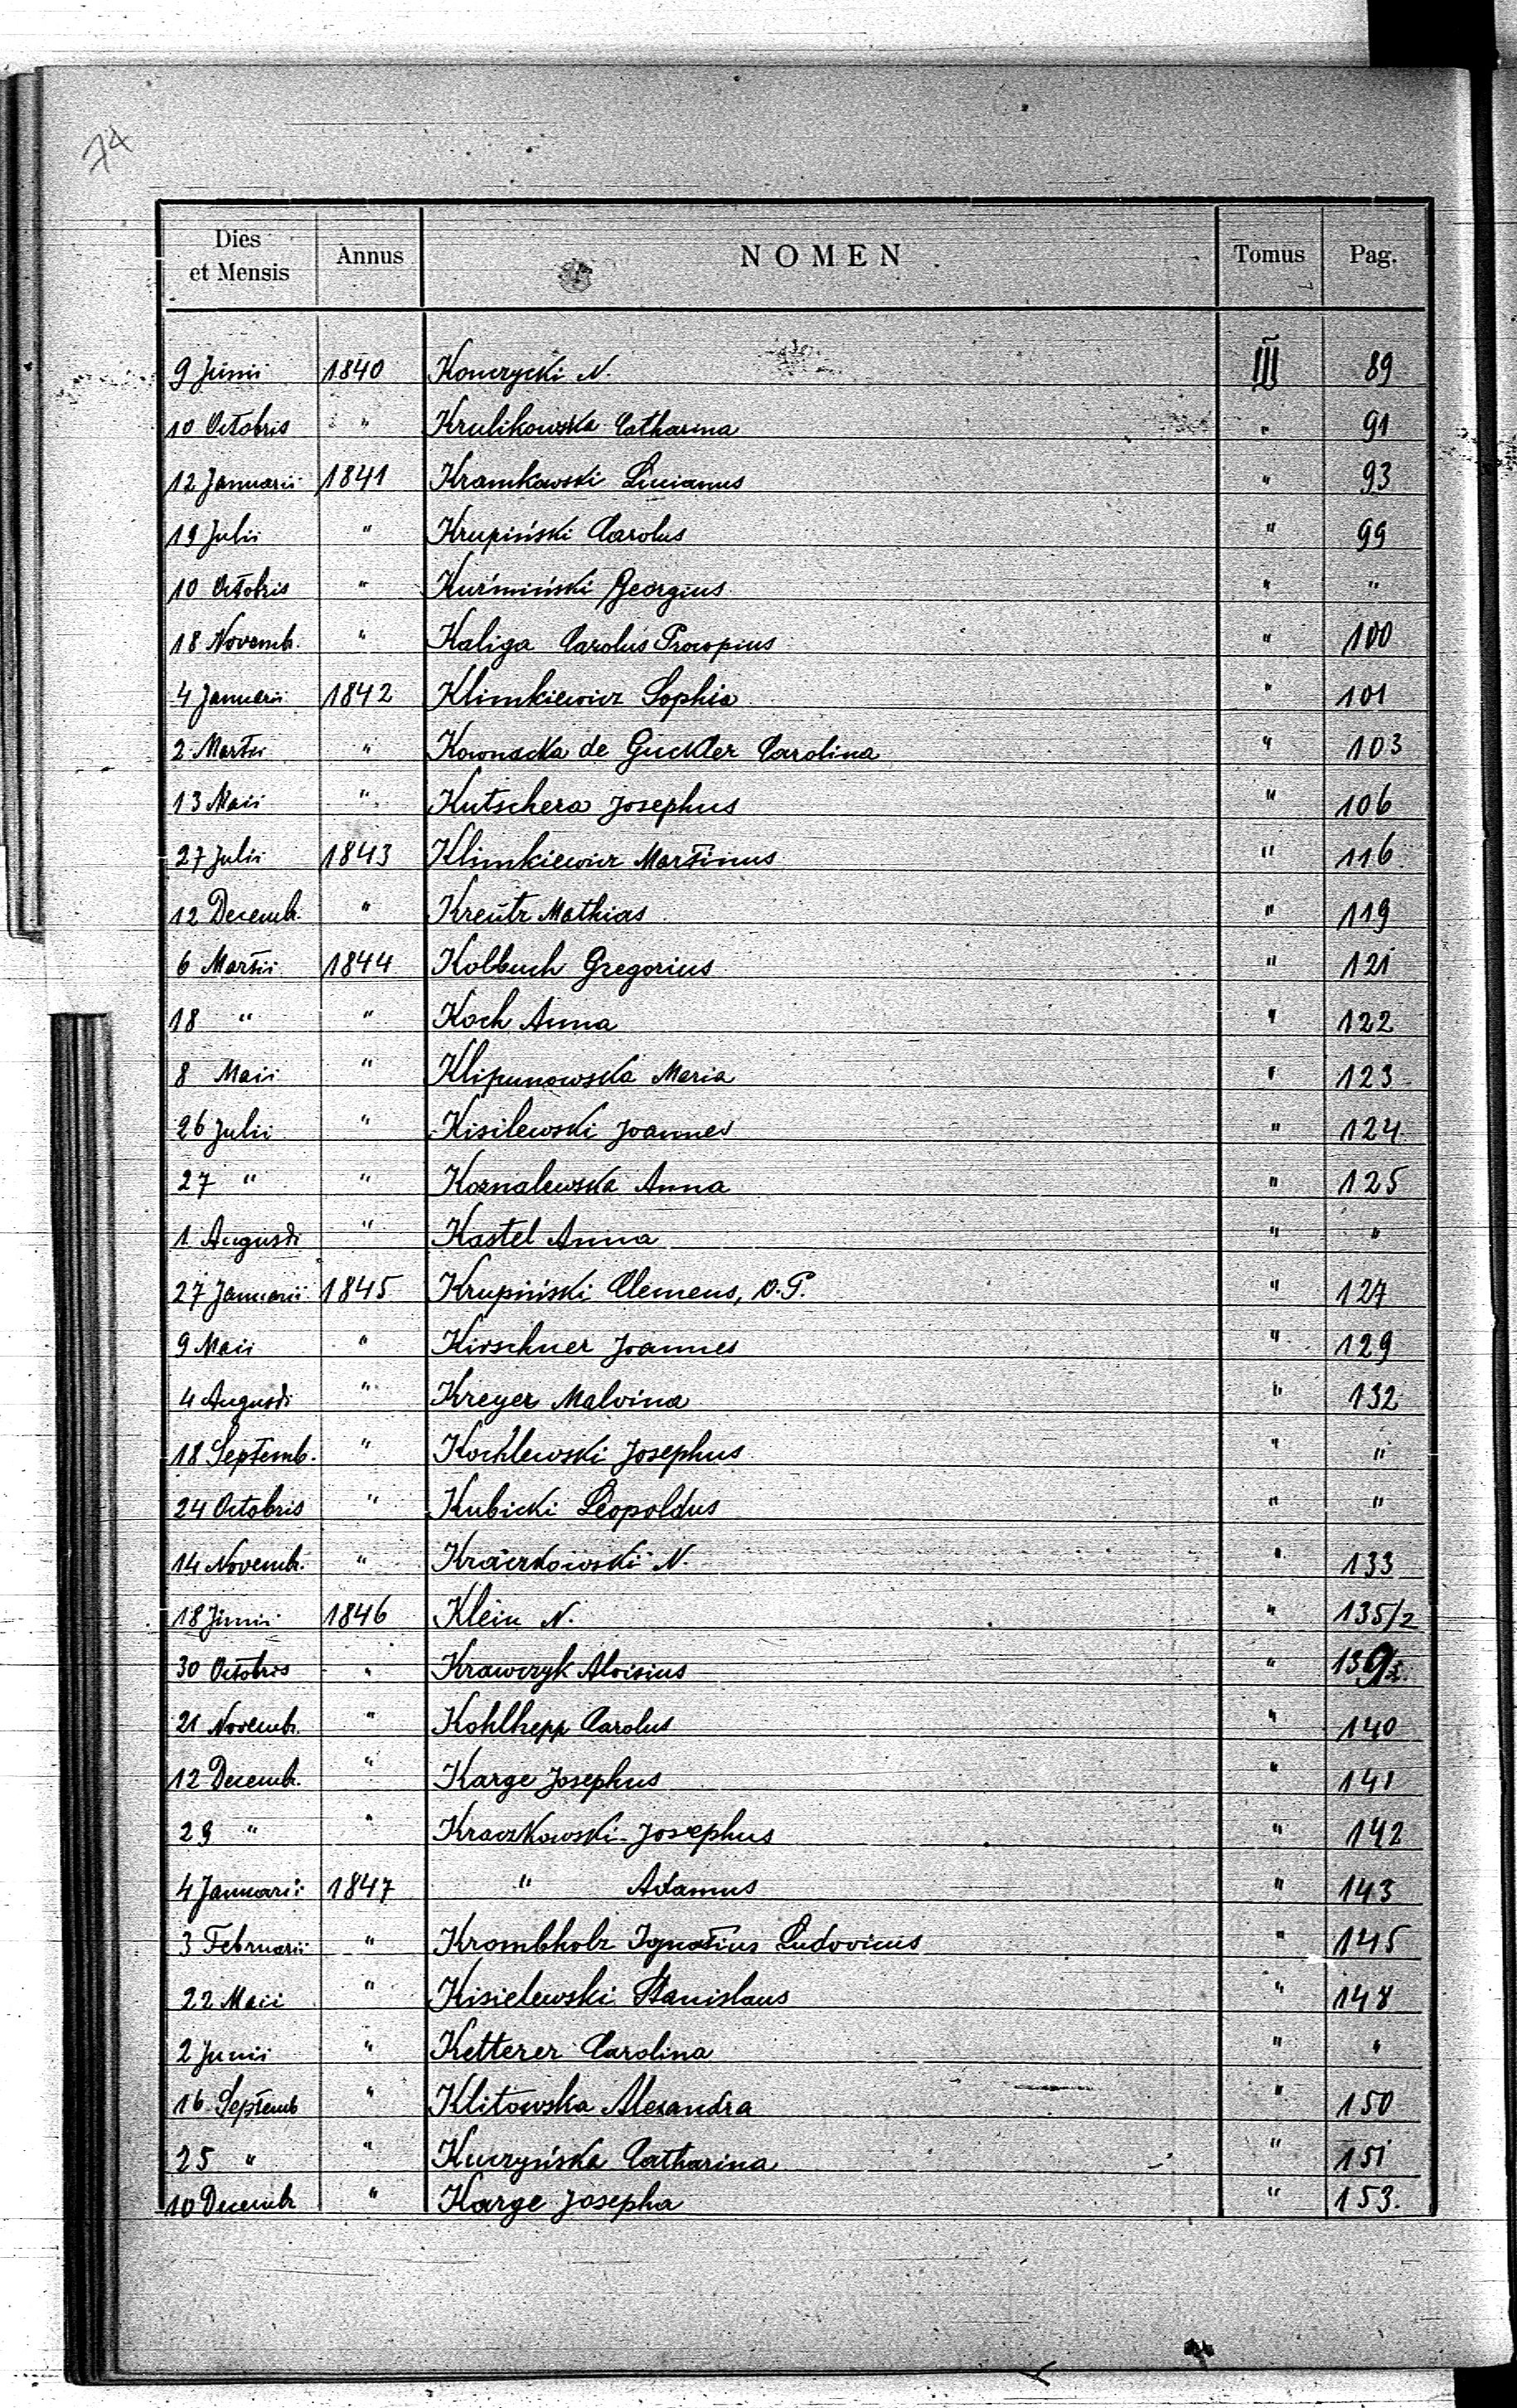 74
Dies et Mensis Annus NOMEN Tomus Pag.
9 Junii 1840 Konczycki N. III 89
10 Octobris " Krulikowska Catharina " 91
12 Januarii 1841 Kramkowski Lucianus " 93
19 Julii " Krupiński Carolus " 99
10 Octobris " Kuźmiński Georgius " "
18 Novemb. " Kaliga Carolus Procopius " 100
4 Januarii 1842 Klimkiewicz Sophia " 101
2 Martii " Kownacka de Guckler Carolina " 103
13 Maii " Kutschera Josephus " 106
27 Julii 1843 Klimkiewicz Martinus " 116
12 Decemb. " Kreutz Mathias " 119
6 Martii 1844 Kolbuch Gregorius " 121
18 " " Koch Anna " 122
8 Maii " Klipunowska Maria " 123
26 Julii " Kisilewski Joannes " 124
27 " " Koznalewska Anna " 125
1 Augusti " Kastel Anna " "
27 Januarii 1845 Krupiński Clemens, O.P. " 127
9 Maii " Kirschner Joannes " 129
4 Augusti " Kreyer Malvina " 132
18 Septemb. " Kochlewski Josephus " "
24 Octobris " Kubicki Leopoldus " "
14 Novemb. " Kraczkowski N. " 133
18 Junii 1846 Klein N. " 135/2
30 Octobris " Krawczyk Aloisius " 139
21 Novemb. " Kohlhepp Carolus " 140
12 Decemb. " Karge Josephus " 141
29 " " Kraczkowski Josephus " 142
4 Januarii 1847 " Adamus " 143
3 Februarii " Krombholz Ignatius Ludovicus " 145
22 Maii " Kisielewski Stanislaus " 148
2 Junii " Ketterer Carolina " "
16 Septemb " Klitowska Alexandra " 150
25 " " Kuczyńska Catharina " 151
10 Decemb " Karge Josepha " 153.